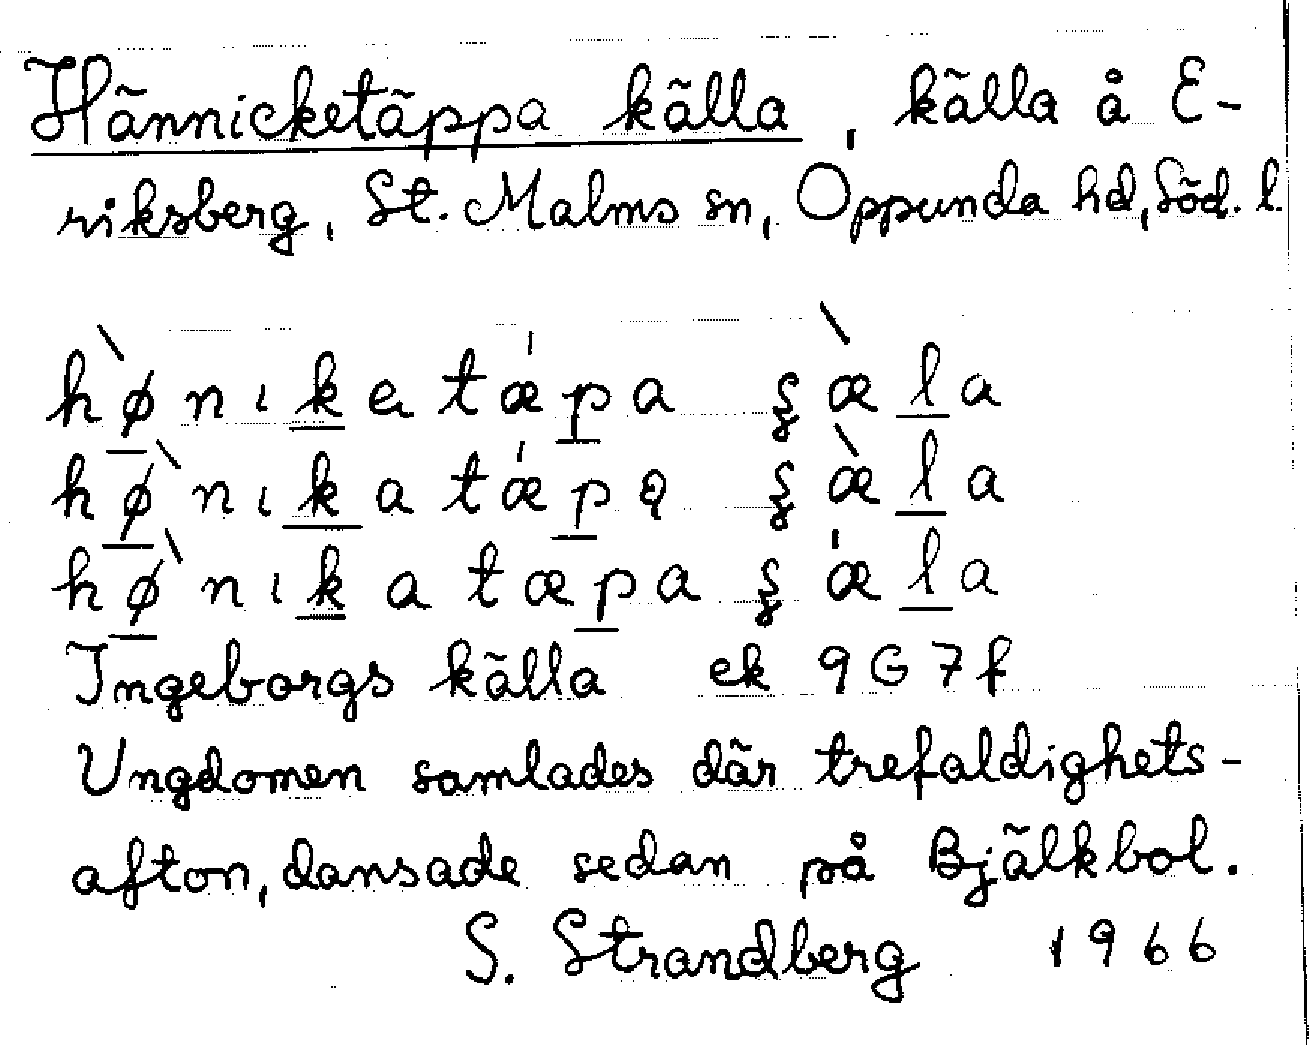 Hännicketäppa källa, källa å E-
riksberg, St. Malms sn, Oppunda hd, Söd. l.
hø̀nıkatǽpa ʂæ̀la
hø̀nıkatǽpə ʂæ̀la
hø̀nıkatæpa ʂǽla
Ingeborgs källa ek 9G7f
Ungdomen samlades där trefaldighets-
afton, dansade sedan på Bjälkbol.
S. Strandberg 1966